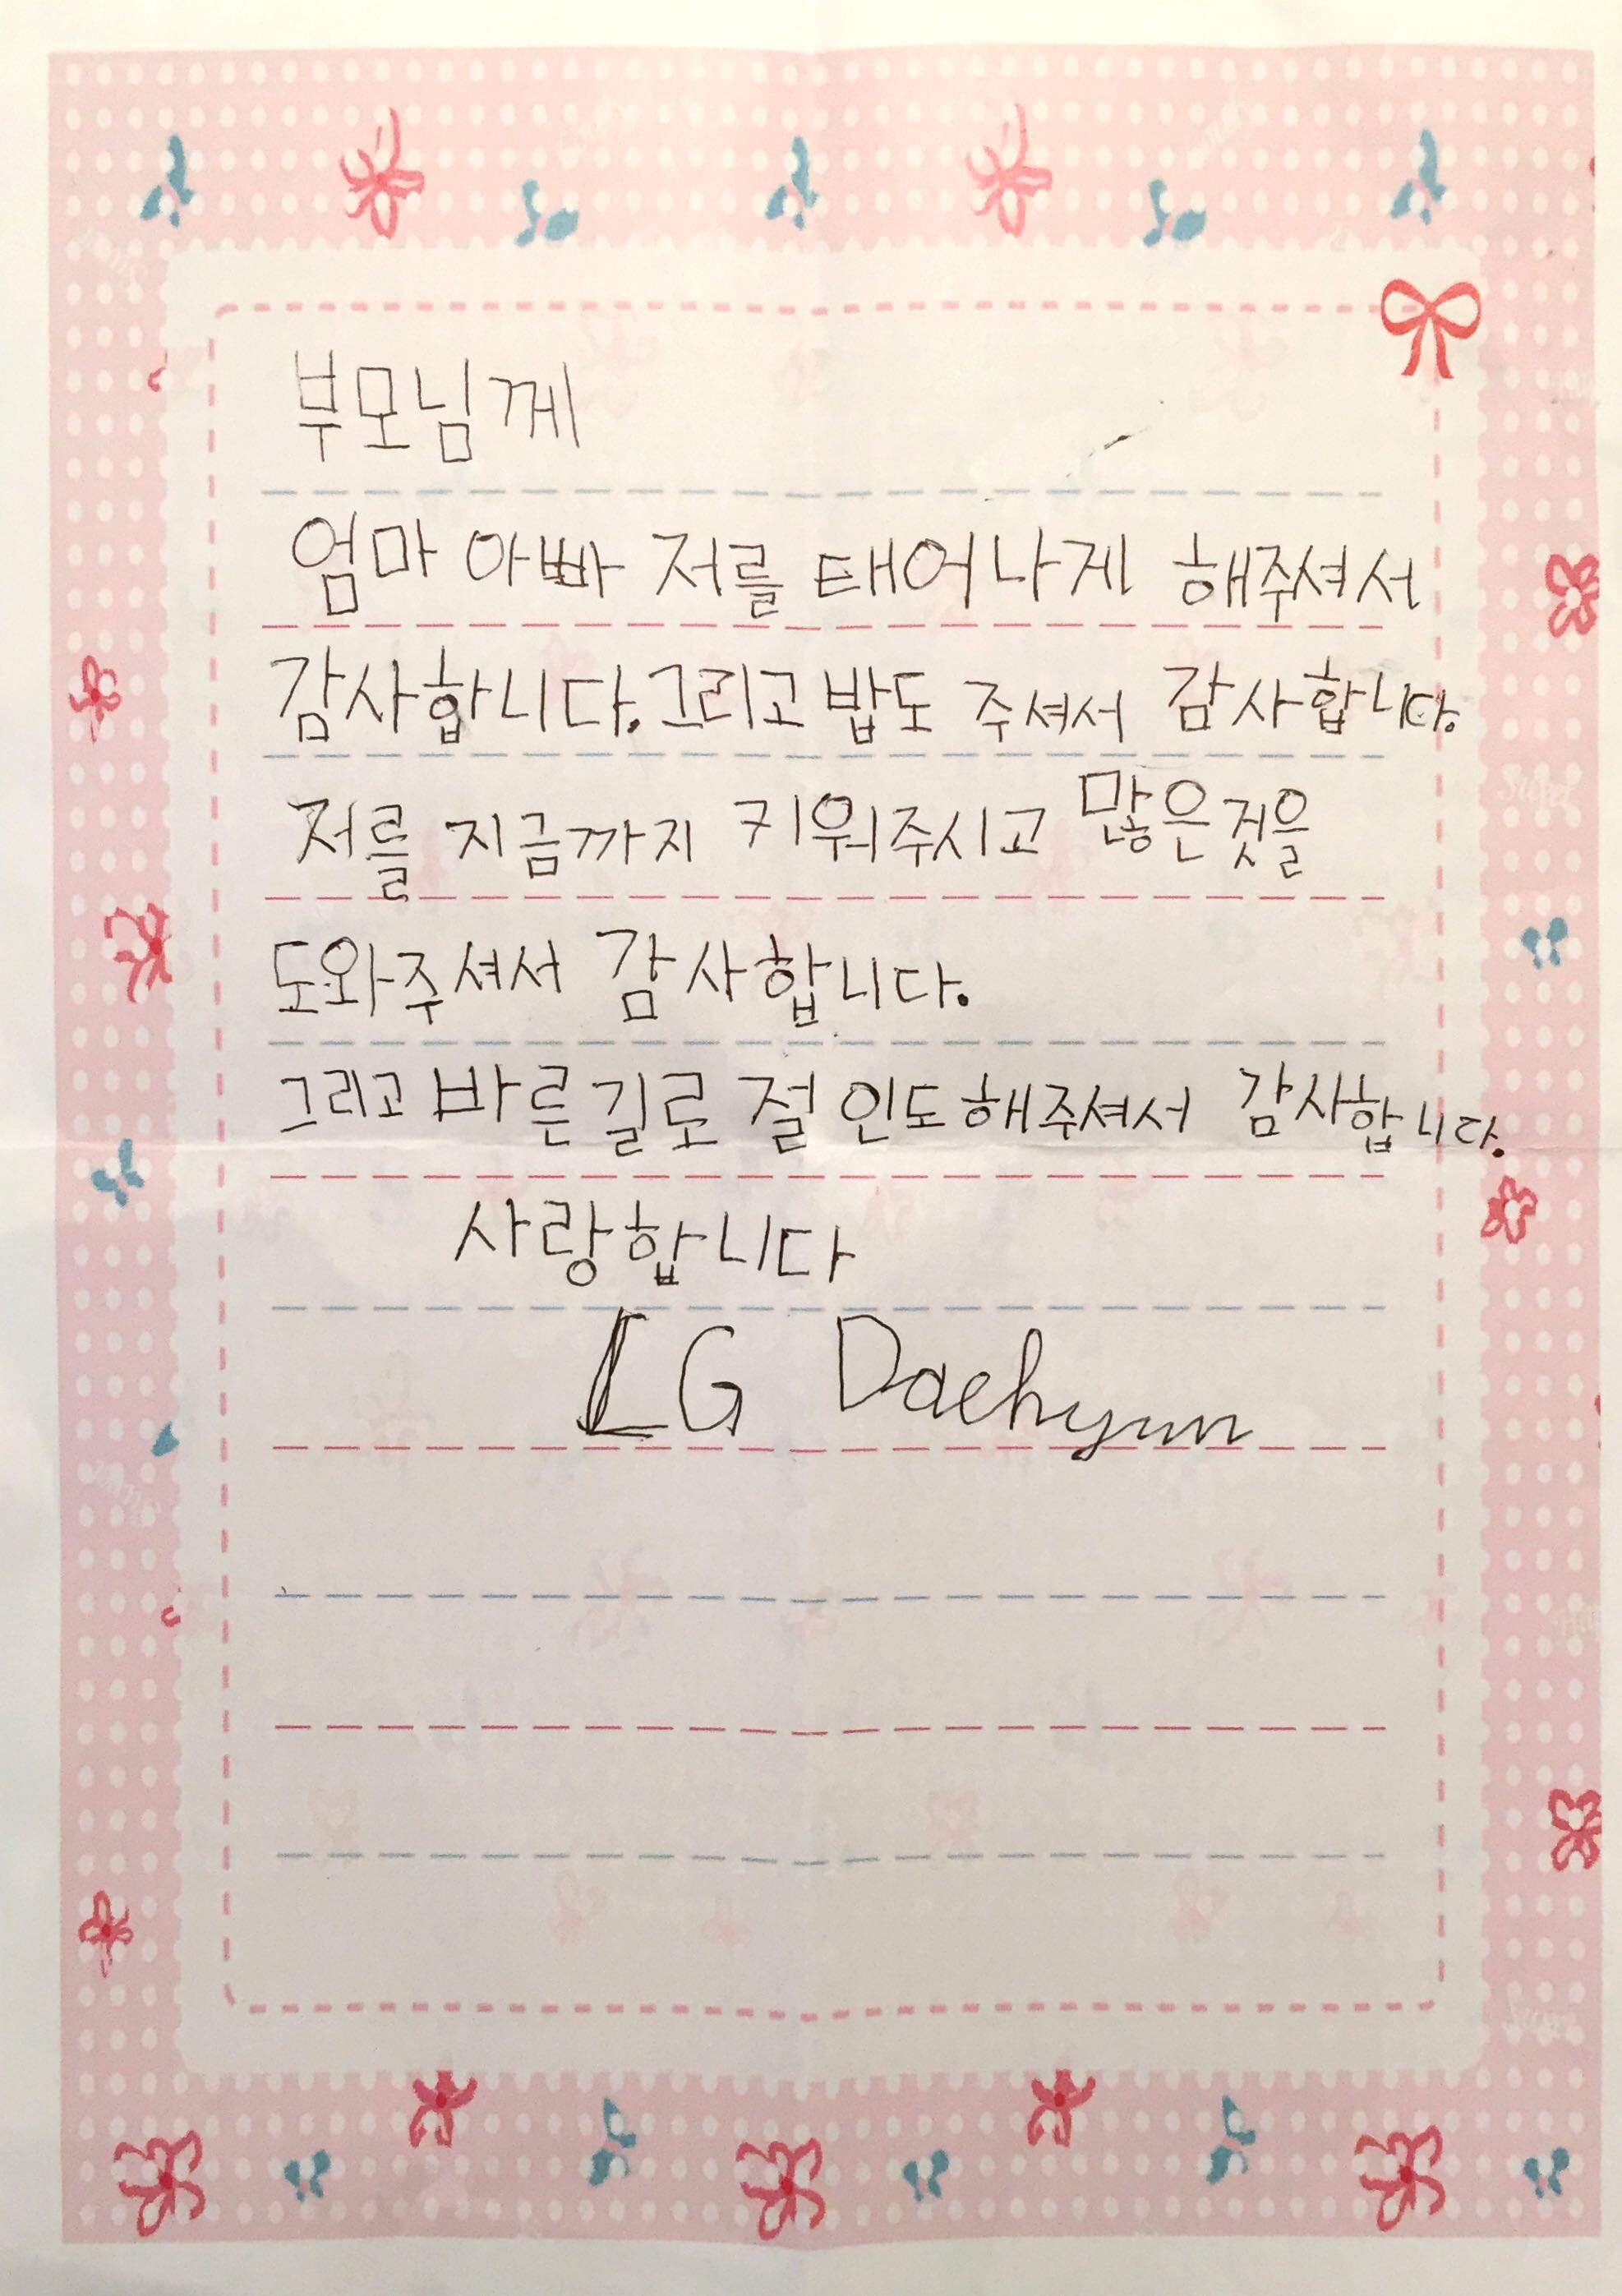 부모님께
엄마 아빠 저를 태어나게 해주셔서
감사합니다.그리고 밥도 주셔서 감사합니다.
저를 지금까지 키워주시고 많은것을
도와주셔서 감사합니다.
그리고 바른길로 절 인도해주셔서 감사합니다.
사랑합니다
LG Daehyun